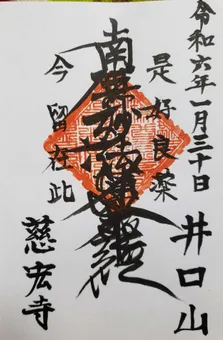 令和六年一月三十日
井口山
是好良薬
南無妙法蓮華経
今留在此
慈宏寺